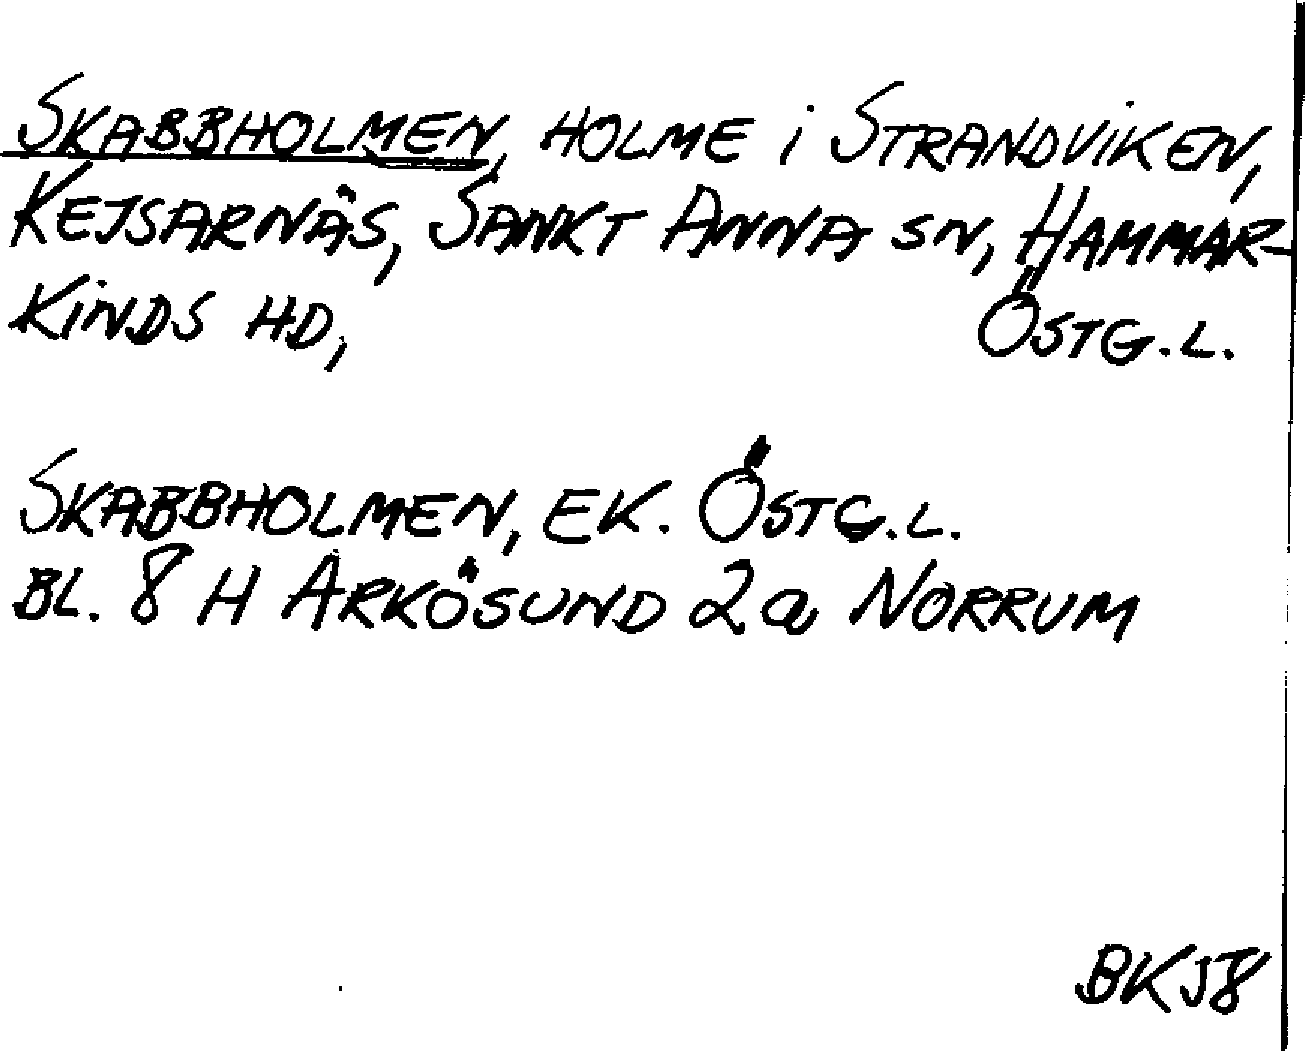 SKABBHOLMEN, HOLME i STRANDVIKEN,
KEJSARNÄS, SANKT ANNA SN, HAMMAR-
KINDS HD, ÖSTG.L.
SKABBHOLMEN, EK. ÖSTG.L.
BL. 8 H ARKÖSUND 2a NORRUM
BKJ8